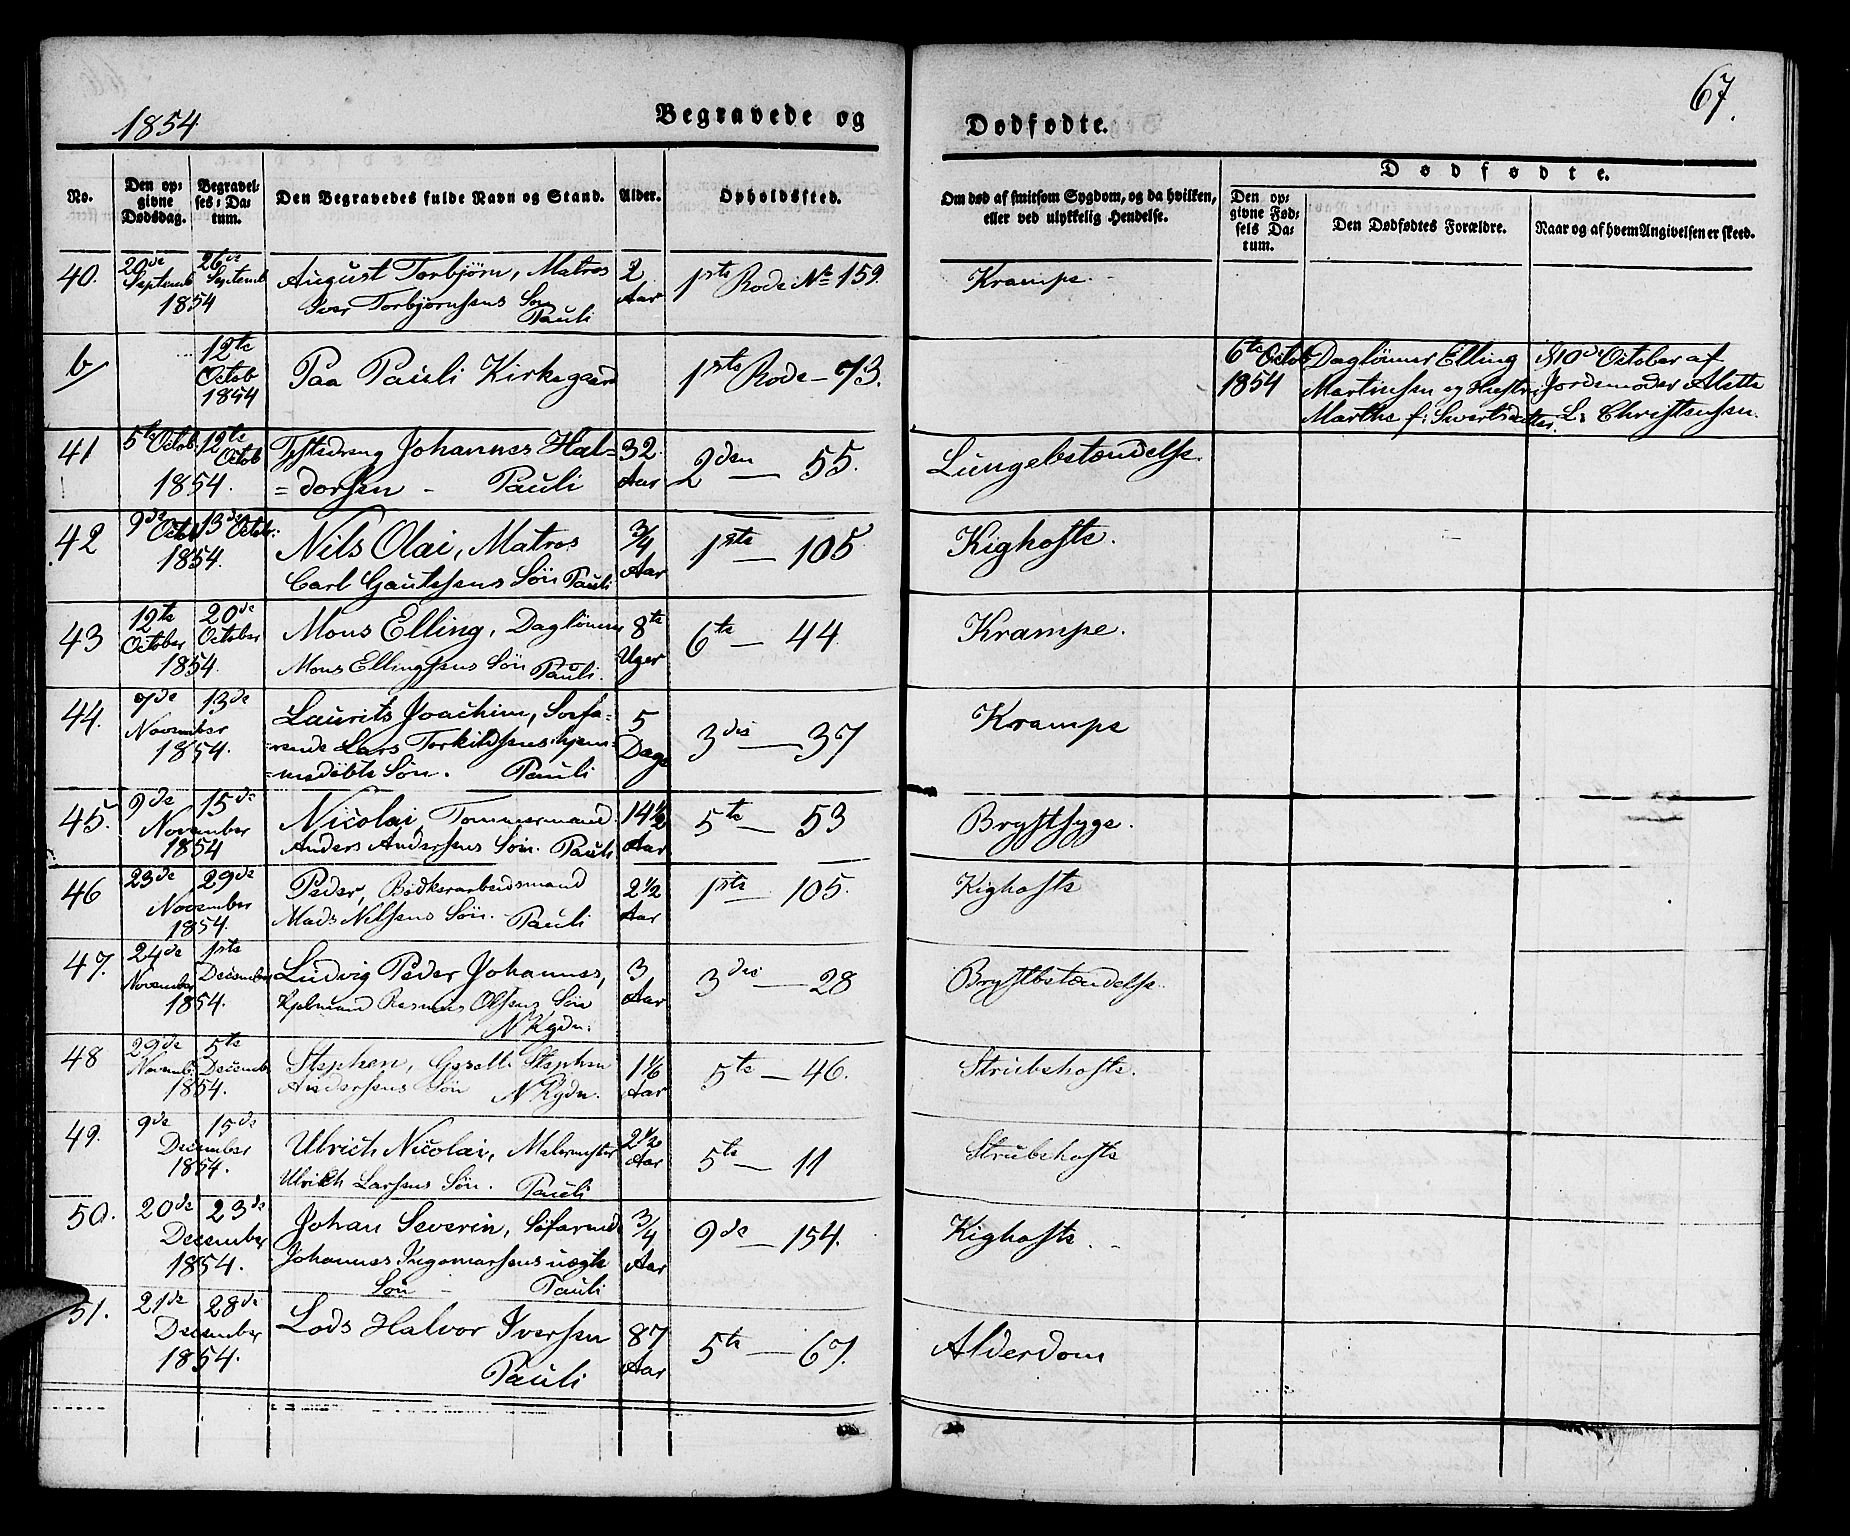 1854
Begravede og
Dødfødte.
67.
No.
Den op:
givne
Dødsdag.
Begravel:
ses: Da:
tum.
Den Begravedes fulde Navn og Stand.
Alder.
Opholdssted.
Om død af smitsom Sygdom, og da hvilken,
eller ved ulykkelig Hendelse.
Dødfødte.
Den op:
givne Fød:
sels Da:
tum.
Den Dødfødtes Forældre.
Naar og af hvem Angivelsen er skeed.
40. 20de Septemb 26de Septemb August Torbjørn, Matros 2 1ste Rode № 159. Krampe.
1854 Iver Torbjørnsens Søn Aar
Pauli
b/ 12te Paa Pauli Kirkegaard 1ste Rode - 73. 6te Octob Daglønner Elling 10de October af
Octob 1854 Martinsen og Hustru Jordemoder Alette
1854 Marthe f: Sivertsdatter. L: Christensen.
41 5te Octob. 12te Octob Tjstedreng Johannes Hal= 32. 2den — 55. Lungebetændelse.
1854. =dorsen - Pauli Aar
42 9de Octob 13de Octobr: Nils Olai, Matros 3/4 1ste — 105 Kighoste.
1854. Carl Gautesens Søn Pauli Aar
43 12te October 20de October Mons Elling, Daglønner 8te 6te — 44. Krampe.
1854. Mons Ellingsens Søn Pauli. Uger
44. 7de 13de Laurits Joachim, Søfa= 5 3die — 37 Krampe
November =rende Lars Torkildsens hjem= Dage
1854. =medøbte Søn. Pauli
45. 9de 15de Nicolai Tømmermand 14½ 5te — 53 Brystsyge.
November Anders Andersens Søn. Pauli Aar
1854
46 23de 29de Peder, Bødkerarbeidsmand 2½ 1ste — 105. Kighoste
November Mads Nilsens Søn. - Pauli Aar
1854.
47. 24de November 1ste December Ludvig Peder Johannes, 3 3die — 28 Brystbetændelse.
1854. Kjøbmand Rasmus Olsens Søn Aar
N Kgdn.
48 29de Novemb. 5te Decemb. Stephen, Gesell Stephen 1 1/6 5te — 46. Strubehoste.
1854. Andersens Søn N Kgdn. Aar
49. 9de 15de Ulrich Nicolai, Malermester 2½ 5te — 11 Strubehoste
December Ulrich Larsens Søn. Pauli Aar
1854.
50. 20de 23de Johan Severin, Søfarende 3/4 9de — 154. Kighoste.
December Johannes Ingemarsens uægte Aar
1854. Søn - Pauli
51. 21de 28de Lods Halvor Iversen 87 5te — 67. Alderdom
December Pauli Aar
1854.